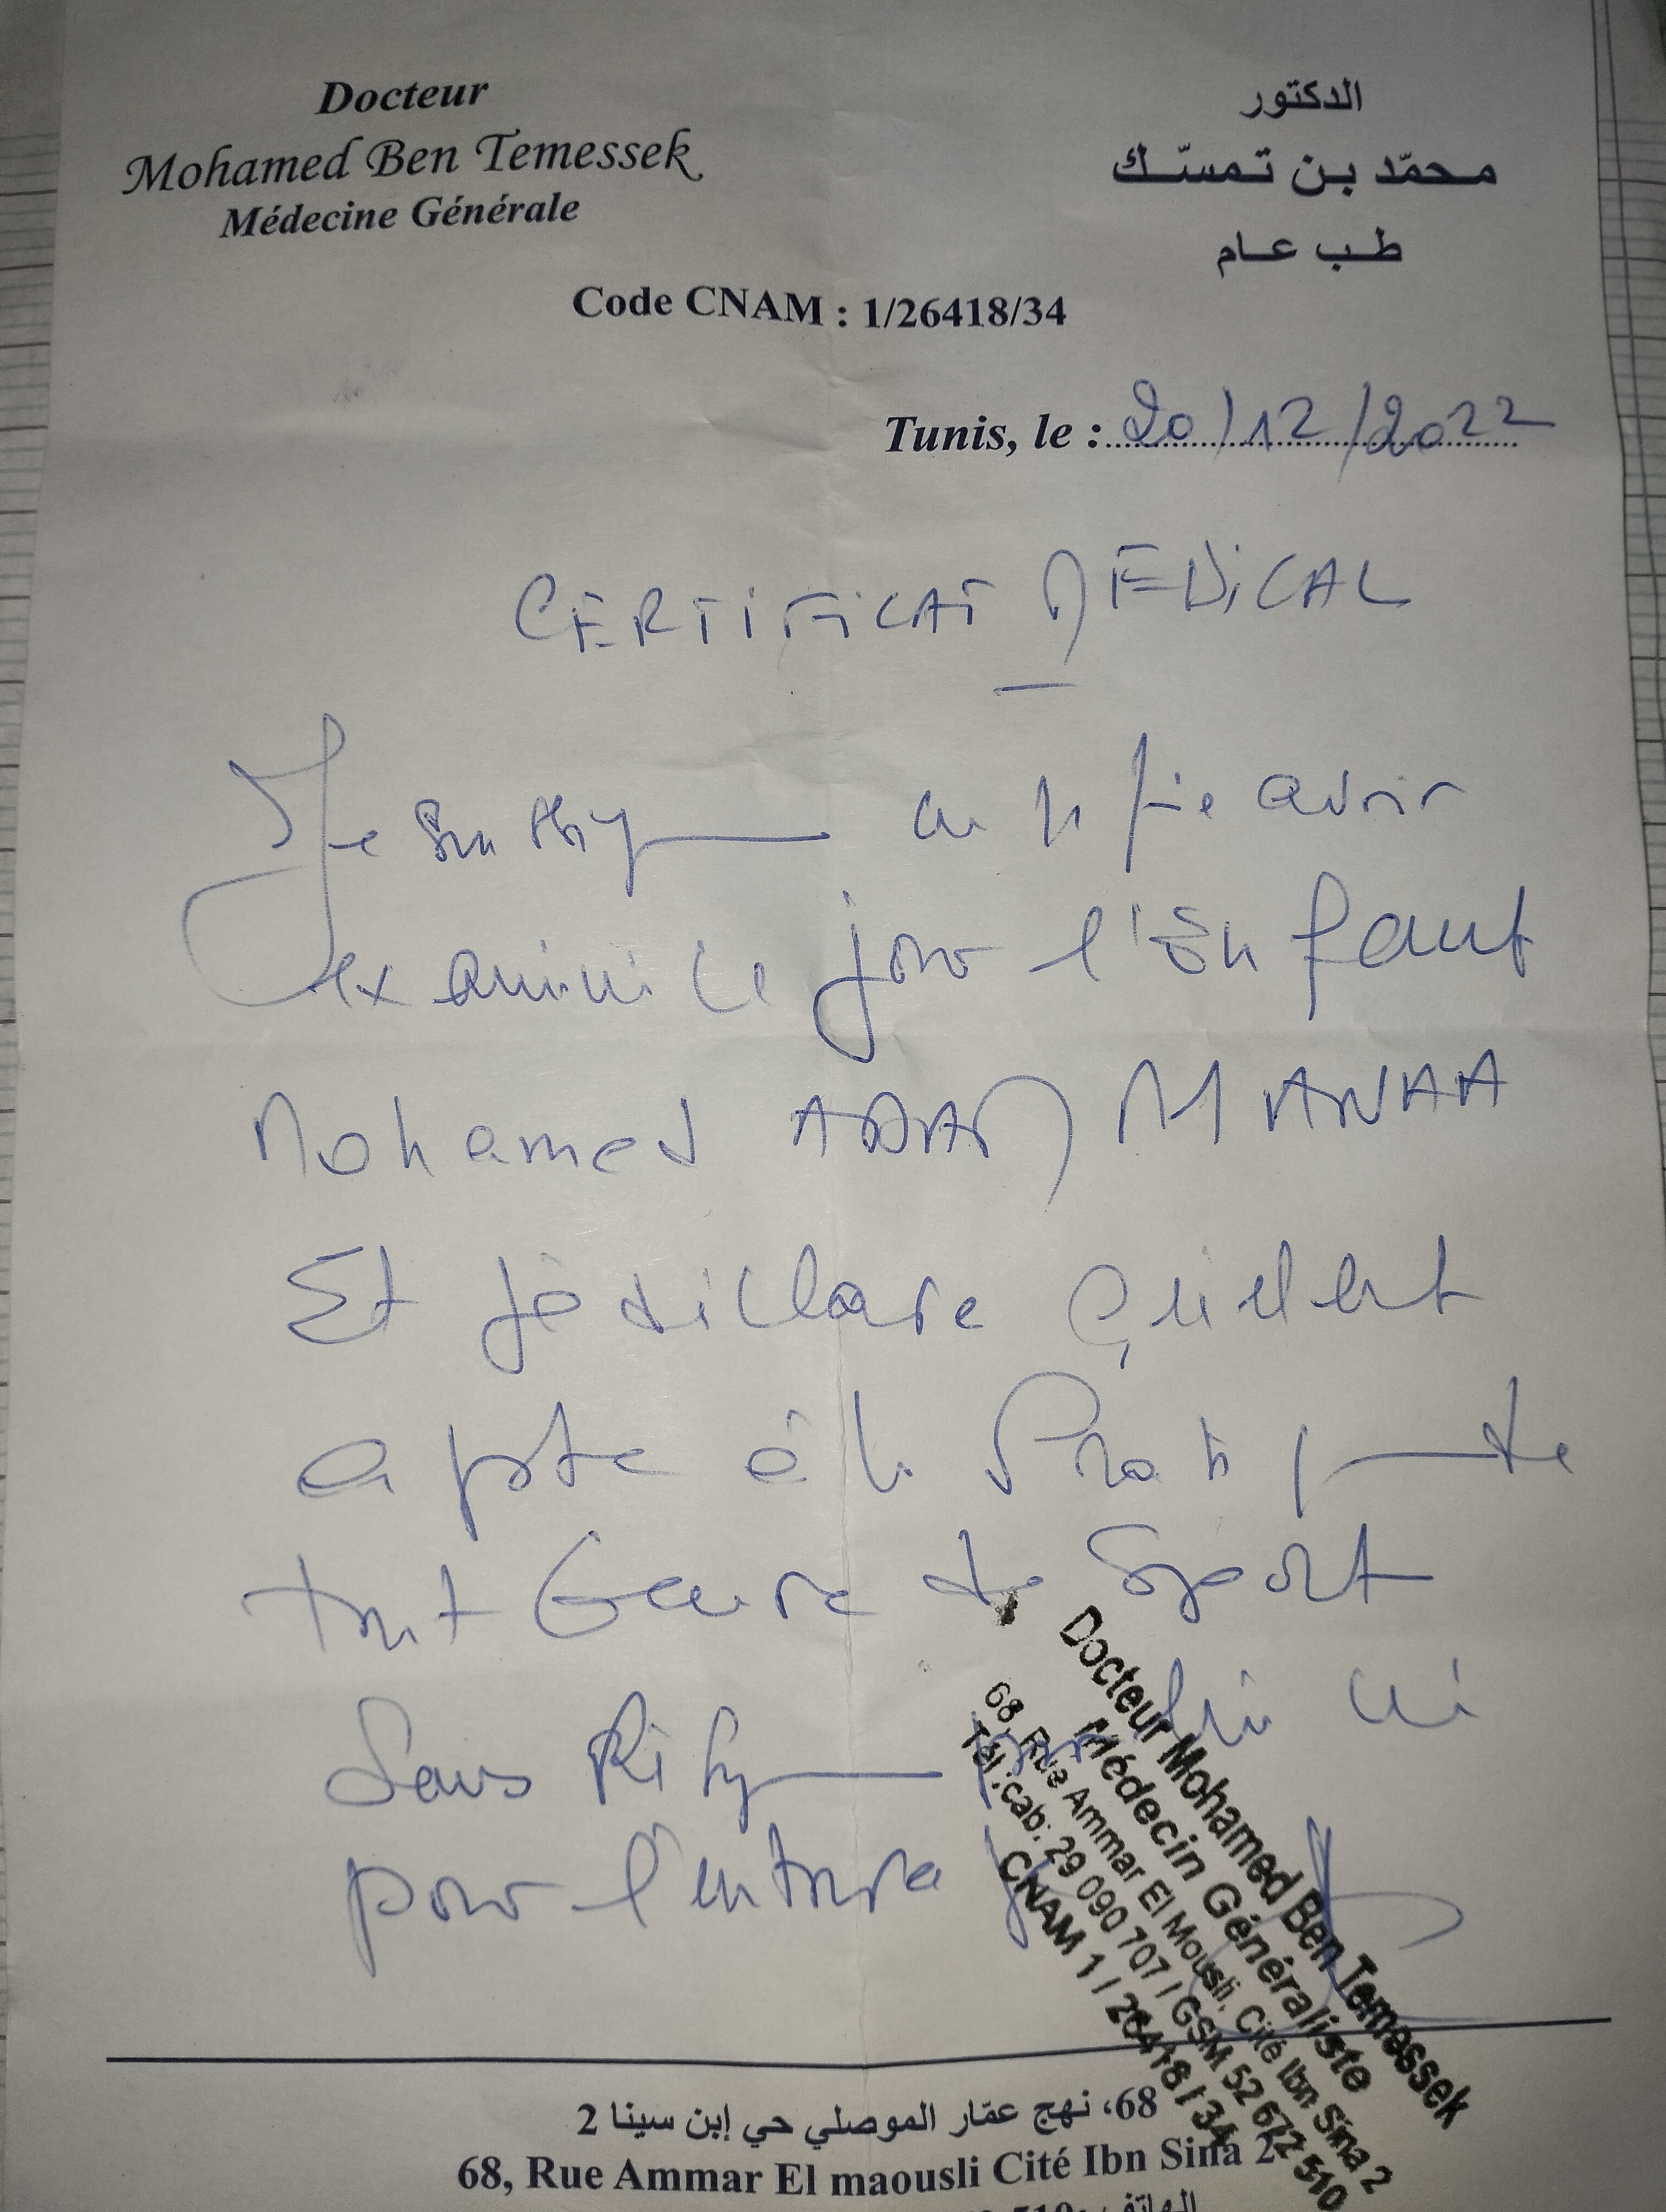 Docteur
Mohamed Ben Temessek
Médecine Générale
الدكتور
محمّد بن تمسّك
طب عام
Code CNAM : 1/26418/34
Tunis, le : 20/12/2022
CERTIFICAT MEDICAL
Je soussigné certifie avoir
examiné ce jour l'Enfant
Mohamed ADAM MANAA
Et je déclare qu'il est
apte à la Pratique de
tout Genre de Sport
Sans Risque
pour l'enture
Docteur Mohamed Ben Temessek
Médecin Généraliste
68, Rue Ammar El Mousli, Cité Ibn Sina 2
Tél.:cab: 29 090 707 / GSM 52 672 510
CNAM 1 / 26418 / 34
68، نهج عمّار الموصلي حي إبن سينا 2
68, Rue Ammar El maousli Cité Ibn Sina 2
الهاتف